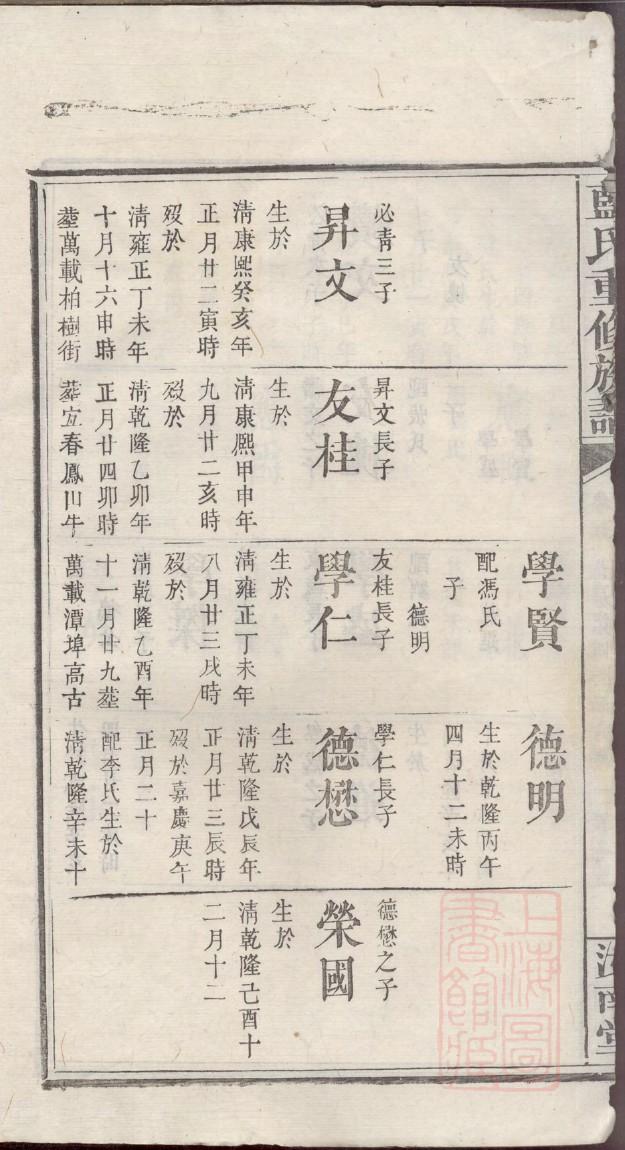 藍氏重修族譜
必青三子
昇文
生於
淸康熙癸亥年
正月廿二寅時
歿於
淸雍正丁未年
十月十六申時
塟萬載柏樹街
昇文長子
友桂
生於
淸康熙甲申年
九月廿二亥時
歿於
淸乾隆乙卯年
正月廿四卯時
塟宜春鳳川牛
學賢
配馮氏
子
德明
友桂長子
學仁
生於
淸雍正丁未年
八月廿三戌時
歿於
淸乾隆乙酉年
十一月廿九塟
萬載潭埠高古
德明
生於乾隆丙午
四月十二未時
學仁長子
德懋
生於
淸乾隆戊辰年
正月廿三辰時
歿於嘉慶庚午
正月二十
配李氏生於
淸乾隆辛未十
德懋之子
榮國
生於
淸乾隆己酉十
二月十二
上海圖
書館藏